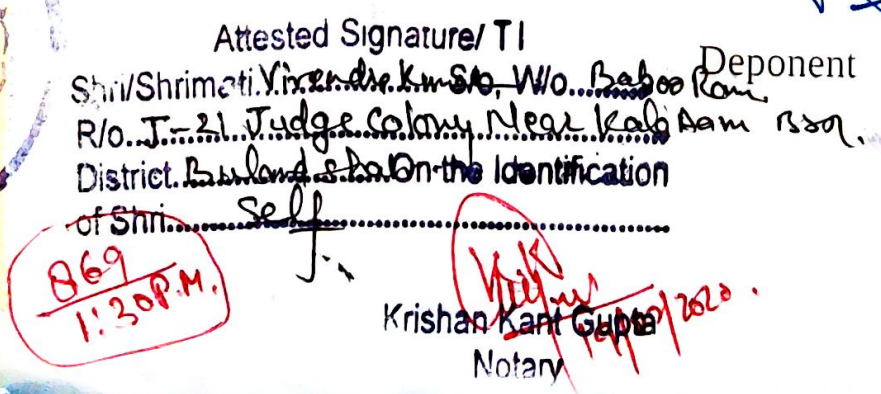 Attested Signature/ TI
Deponent
Shri/Shrimati Virendra Km S/o, W/o Baboo Ram
R/o. J-21 Judge Colony Near Kala Aam BSR.
District Bulandsha On the Identification
of Shri Self
869
1:30 P.M.
Krishan Kant Gupta
/2020.
Notary